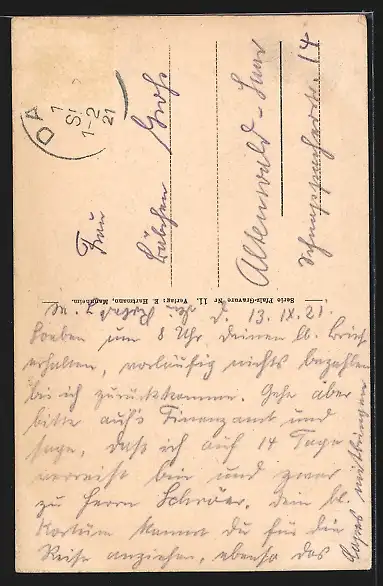 DA
1
S1
1-2
21
Frau
Lübchen Groh
Altenwald-Saar
Schnappacherstr. 14
Serie Pfalz-Gravure Nr 11. Verlag: E. Hartmann, Mannheim.
d. 13. IX. 21.
Soeben um 8 Uhr deinen lb. Brief
erhalten, vorläufig nichts bezahlen
bis ich zurückkomme. Gehe aber
bitte auf's Finanzamt und
sage, daß ich auf 14 Tage
verreist bin und zwar
zu Herrn Dein bl.
Kostüm kannst du für die
Reise anziehen, ebenso das
mitbringen